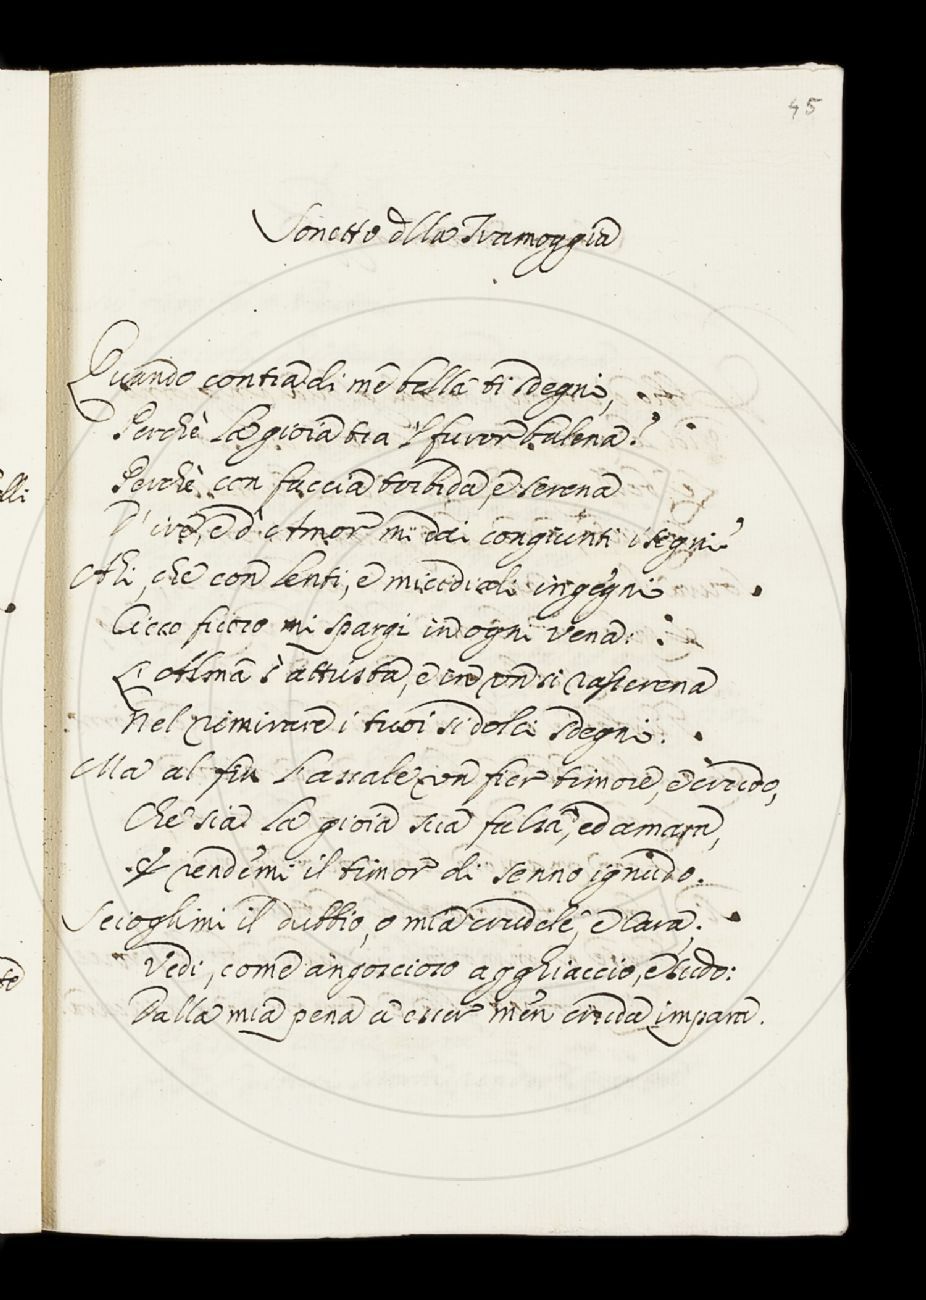 45
Sonetto dlla Tramoggia
Quando contra di me bella ti sdegni,
Perchè la gioia tra 'l furor balena?
Perchè con faccia torbida, e serena
D' ire, e d' Amor mi dai congiunti i segni?
Ahi, che con lenti, e micidiali ingegni
Cieco fuoco mi spargi in ogni vena:
L' Alma s' attrista, e in un si rasserena
Nel rimirare i tuoi sì dolci sdegni.
Ma al fin l' assale un fier timore, e crudo,
Che sia la gioia sua falsa, ed amara,
E rendemi il timor di senno ignudo.
Scioglimi il dubbio, o mia crudele, e cara,
Vedi, come angoscioso agghiaccio, e sudo:
Dalla mia pena a esser men cruda impara.
lli